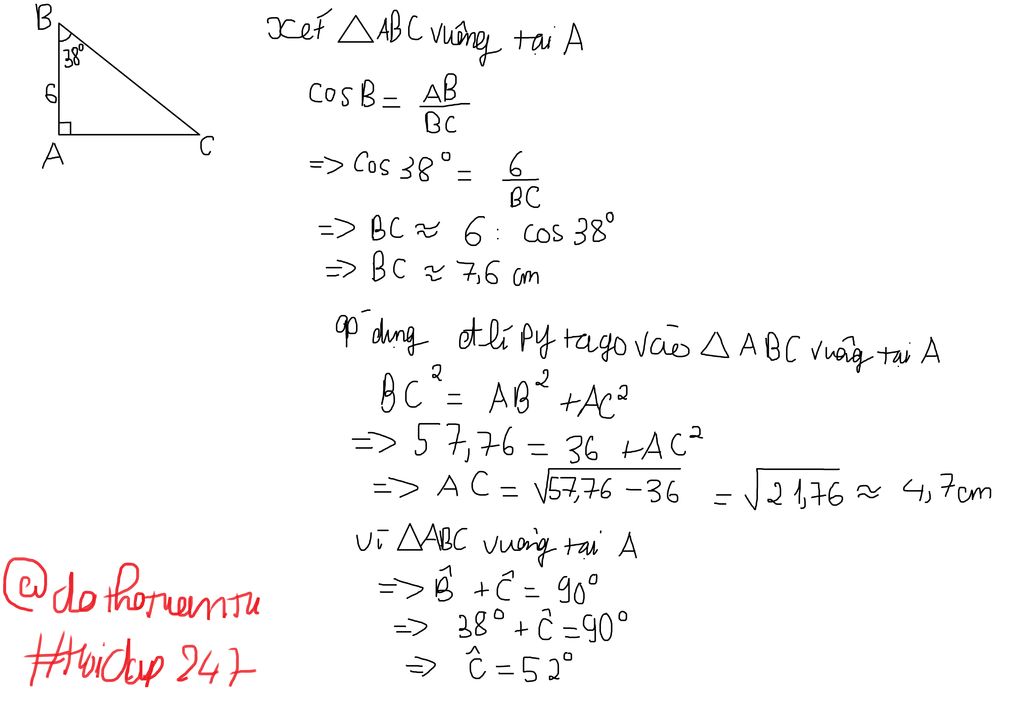 B
38°
6
A
C
Xét △ABC vuông tại A
cosB = AB/BC
=> cos 38° = 6/BC
=> BC ≈ 6 : cos 38°
=> BC ≈ 7,6 cm
áp dụng đlí Pytago vào △ABC vuông tại A
BC² = AB² + AC²
=> 57,76 = 36 + AC²
=> AC = √57,76 - 36 = √21,76 ≈ 4,7cm
vì △ABC vuông tại A
=> B̂ + Ĉ = 90°
=> 38° + Ĉ = 90°
=> Ĉ = 52°
#hoidap 247